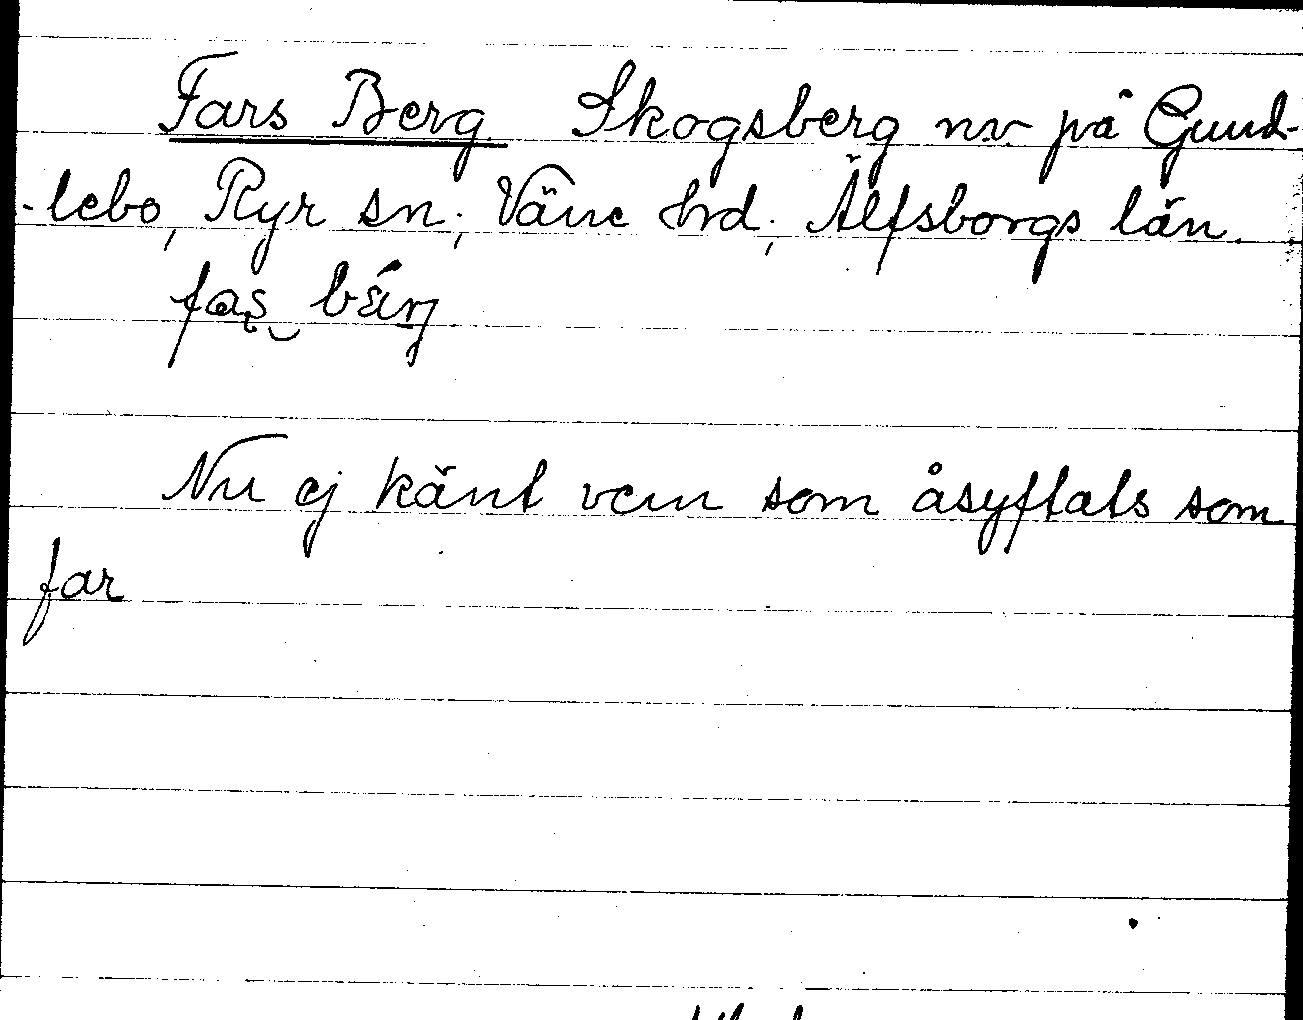 Fars Berg Skogsberg nv på Gund-
-lebo, Ryr sn; Väne hrd; Älfsborgs län.
Nu ej känt vem som åsyftats som
far